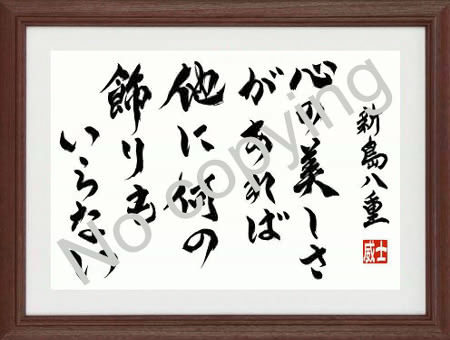 新島八重
心の美しさ
があれば
他に何の
飾りも
いらない
威士
No copying